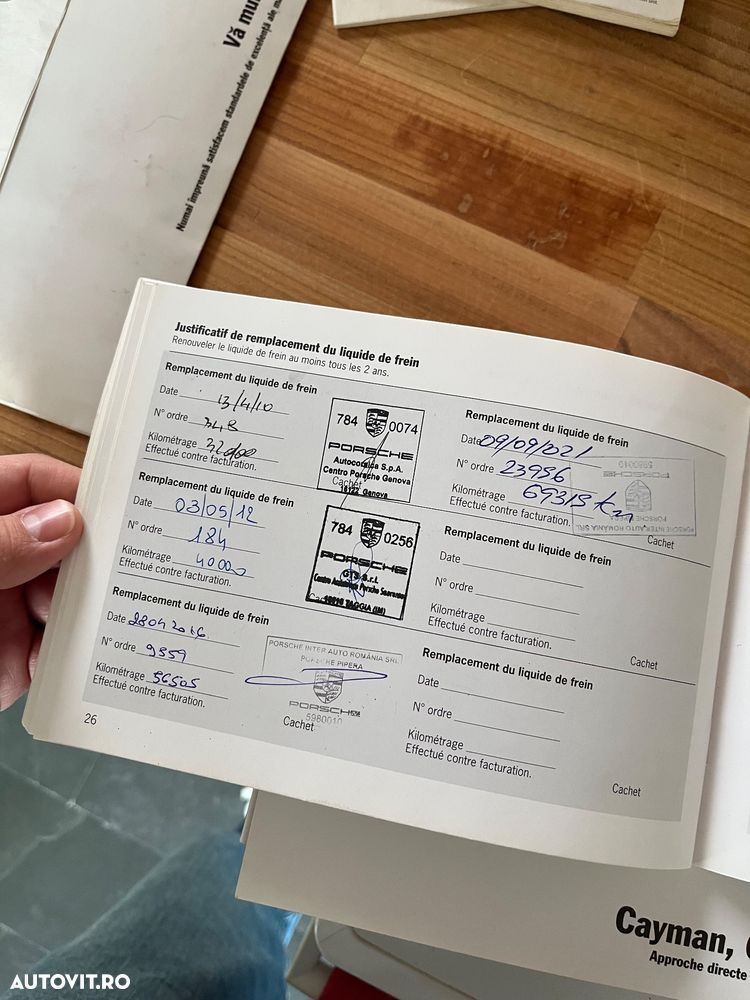 Vă mul
Numai împreună satisfacem standardele de excelență ale m
Justificatif de remplacement du liquide de frein
Renouveler le liquide de frein au moins tous les 2 ans.
Remplacement du liquide de frein
Date 13/4/10
N° ordre 348
Kilométrage
Effectué contre facturation.
784 0074
PORSCHE
Autocorsica S.p.A.
Centro Porsche Genova
Cachet
16122 Genova
Remplacement du liquide de frein
Date 03/05/12
N° ordre 184
Kilométrage 40000
Effectué contre facturation.
784 0256
PORSCHE
GTS S.r.l.
Centro Assistenza Porsche
TAGGIA (IM)
Remplacement du liquide de frein
Date 28042016
N° ordre 9359
Kilométrage 56505
Effectué contre facturation.
PORSCHE INTER AUTO ROMÂNIA SRL
PORSCHE PIPERA
PORSCHE
5980010
Cachet
26
Remplacement du liquide de frein
Date 09/09/2021
N° ordre 23956
Kilométrage 69319 km
Effectué contre facturation.
5980010
PORSCHE
PORSCHE PIPERA
PORSCHE INTER AUTO ROMÂNIA SRL
Cachet
Remplacement du liquide de frein
Date
N° ordre
Kilométrage
Effectué contre facturation.
Cachet
Remplacement du liquide de frein
Date
N° ordre
Kilométrage
Effectué contre facturation.
Cachet
Cayman, C
Approche directe
AUTOVIT.RO